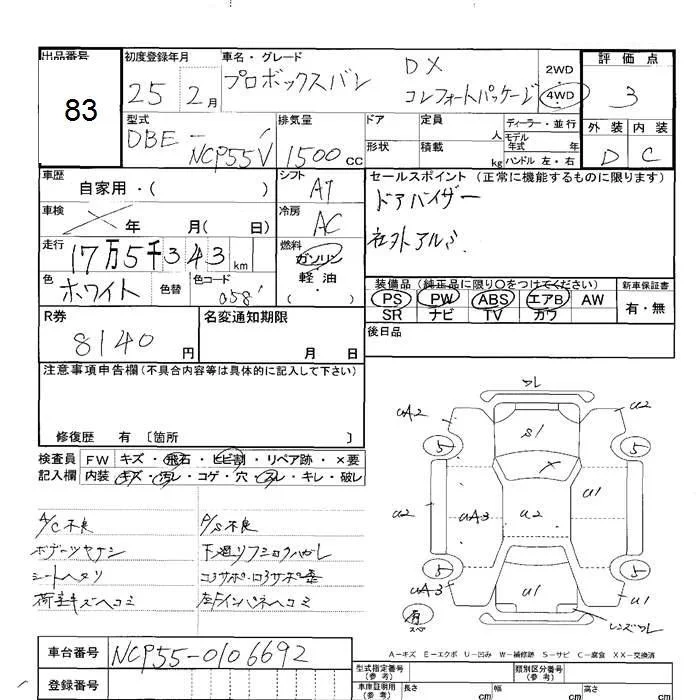 出品番号 初度登録年月 車名・グレード 評価点
83
25 2月
プロボックスバン DX
コンフォートパッケージ
2WD
4WD
3
型式 排気量 ドア 定員 人 ディーラー・並行
DBE-
NCP55V
1500 CC
形状 積載 kg
モデル年式 年
ハンドル 左・右
外装 内装
D C
車歴 自家用・( ) シフト AT
車検 年 月( 日) 冷房 AC
走行 17万5千343km 燃料 ガソリン
軽油
( )
色 ホワイト 色替 色コード 058
セールスポイント(正常に機能するものに限ります)
ドアバイザー
社外アルミ
装備品(純正品に限り○をつけてください) 新車保証書
PS PW ABS エアB AW 有・無
SR ナビ TV カワ
後日品
R券 8140円 名変通知期限
月 日
注意事項申告欄(不具合内容等は具体的に記入して下さい)
修復歴 有 〔箇所 〕
検査員 FW キズ・飛石・ヒビ割・リペア跡・×要
記入欄 内装 キズ・汚レ・コゲ・穴・スレ・キレ・破レ
A/C不良 P/S不良
ボデーツヤナシ
シートヘタリ
荷室キズヘコミ
ワレ
uA2 u2
S1
5 5
X
u2 uA3 u2 u1 u1
5 5
uA3 u1
有
スペア
レンズワレ
A-キズ E-エクボ U-凹み W-補修跡 S-サビ C-腐食 XX-交換済
車台番号 NCP55-0106692
登録番号
型式指定番号(参考) 類別区分番号(参考)
車庫証明用(参考) 長さ cm 幅 cm 高さ cm